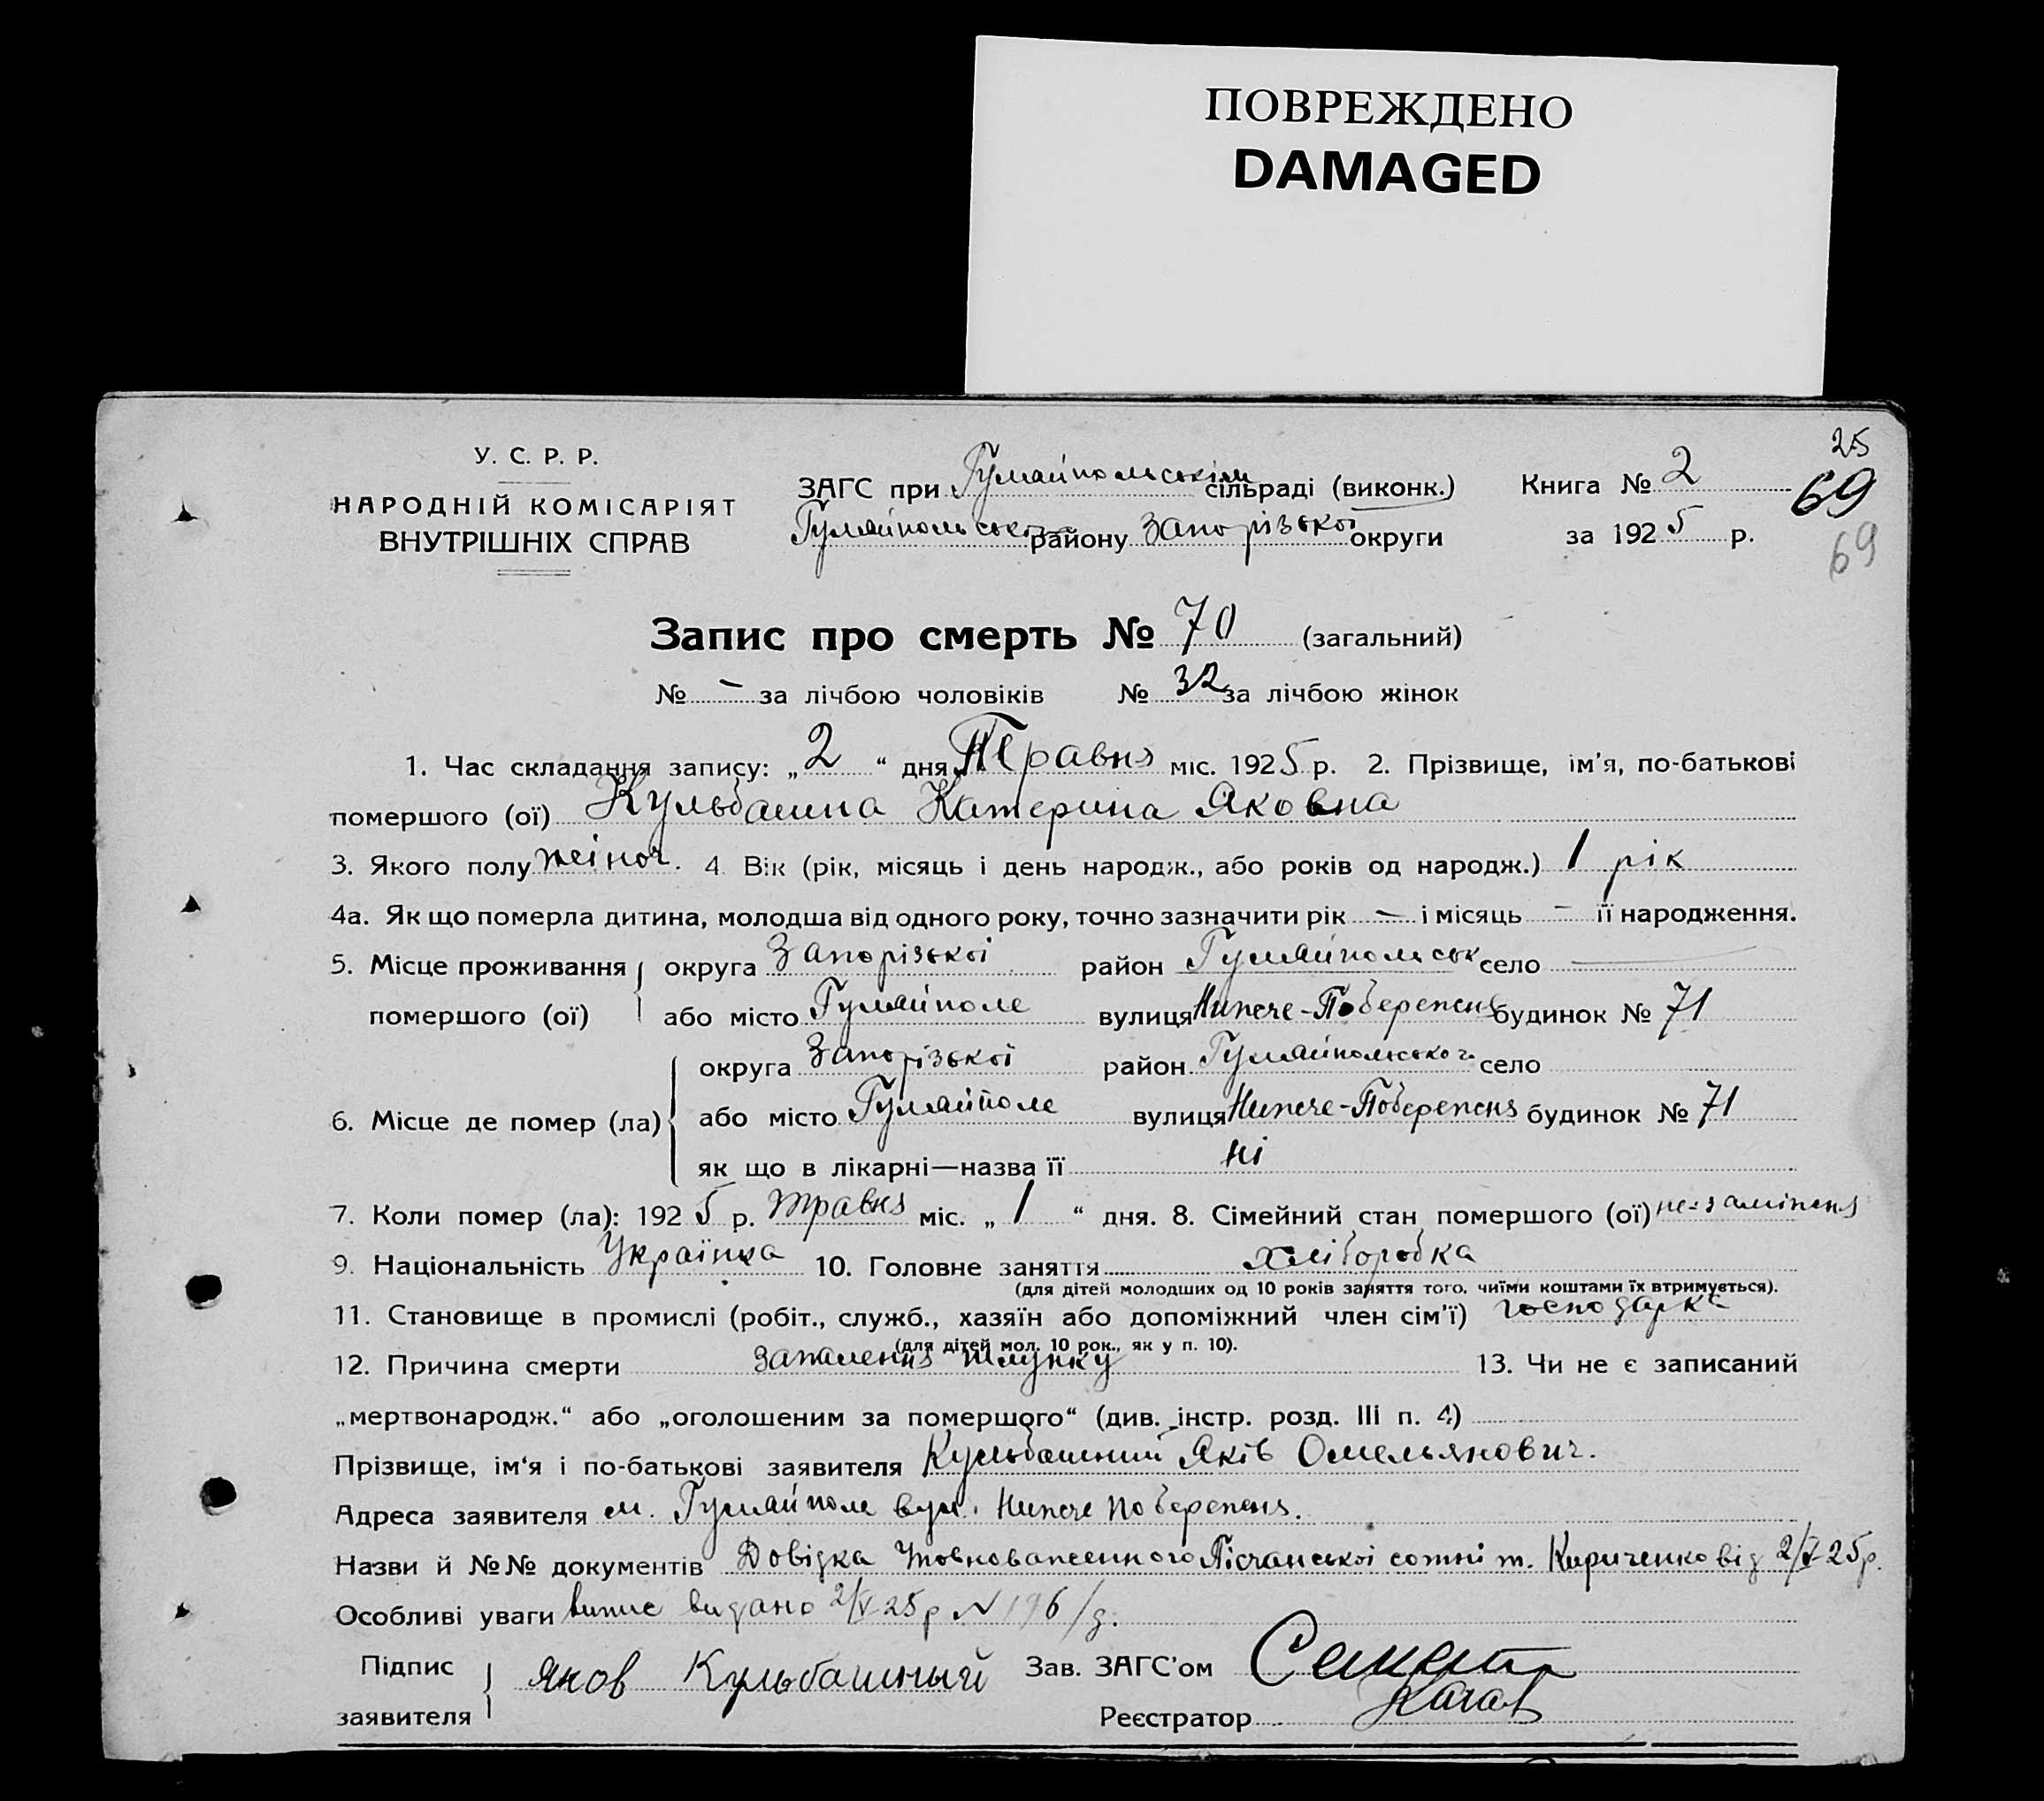 ПОВРЕЖДЕНО
DAMAGED
25
У. С. Р. Р.
НАРОДНІЙ КОМІСАРІЯТ
ВНУТРІШНІХ СПРАВ
ЗАГС при Гуляйпольськім сільраді (виконк.)
Гуляйпольського району Запорізької округи
Книга № 2
за 1925 р.
69
69
Запис про смерть № 70 (загальний)
№ – за лічбою чоловіків № 32 за лічбою жінок
1. Час складання запису: „2“ дня Травня міс. 1925 р. 2. Прізвище, ім'я, по-батькові
помершого (ої) Кульбашна Катерина Яковна
3. Якого полу жіноч. 4 Вік (рік, місяць і день народж., або років од народж.) 1 рік
4а. Як що померла дитина, молодша від одного року, точно зазначити рік – і місяць – її народження.
5. Місце проживання округа Запорізької район Гуляйпольськ село —
помершого (ої) або місто Гуляйполе вулиця Нижче-Побережжя будинок № 71
округа Запорізької район Гуляйпольського село
6. Місце де помер (ла) або місто Гуляйполе вулиця Нижче-Побережжя будинок № 71
як що в лікарні—назва її ні
7. Коли помер (ла): 1925 р. травня міс. „1“ дня. 8. Сімейний стан помершого (ої) не заміжня
9. Національність Українка 10. Головне заняття хліборобка
(для дітей молодших од 10 років заняття того, чиїми коштами їх втримується).
11. Становище в промислі (робіт., служб., хазяїн або допоміжний член сім'ї) господарка
(для дітей мол. 10 рок., як у п. 10).
12. Причина смерти запалення шлунку 13. Чи не є записаний
„мертвонародж.“ або „оголошеним за помершого“ (див. інстр. розд. III п. 4)
Прізвище, ім'я і по-батькові заявителя Кульбашний Яків Омельянович.
Адреса заявителя м. Гуляйполе вул. Нижче Побережжя.
Назви й №№ документів Довідка Уповноваженного Пісчанської сотні т. Кириченко від 2/V 25р.
Особливі уваги випис видано 2/V 25р № 196/д.
Підпис заявителя Яков Кульбашный Зав. ЗАГС'ом
Реєстратор